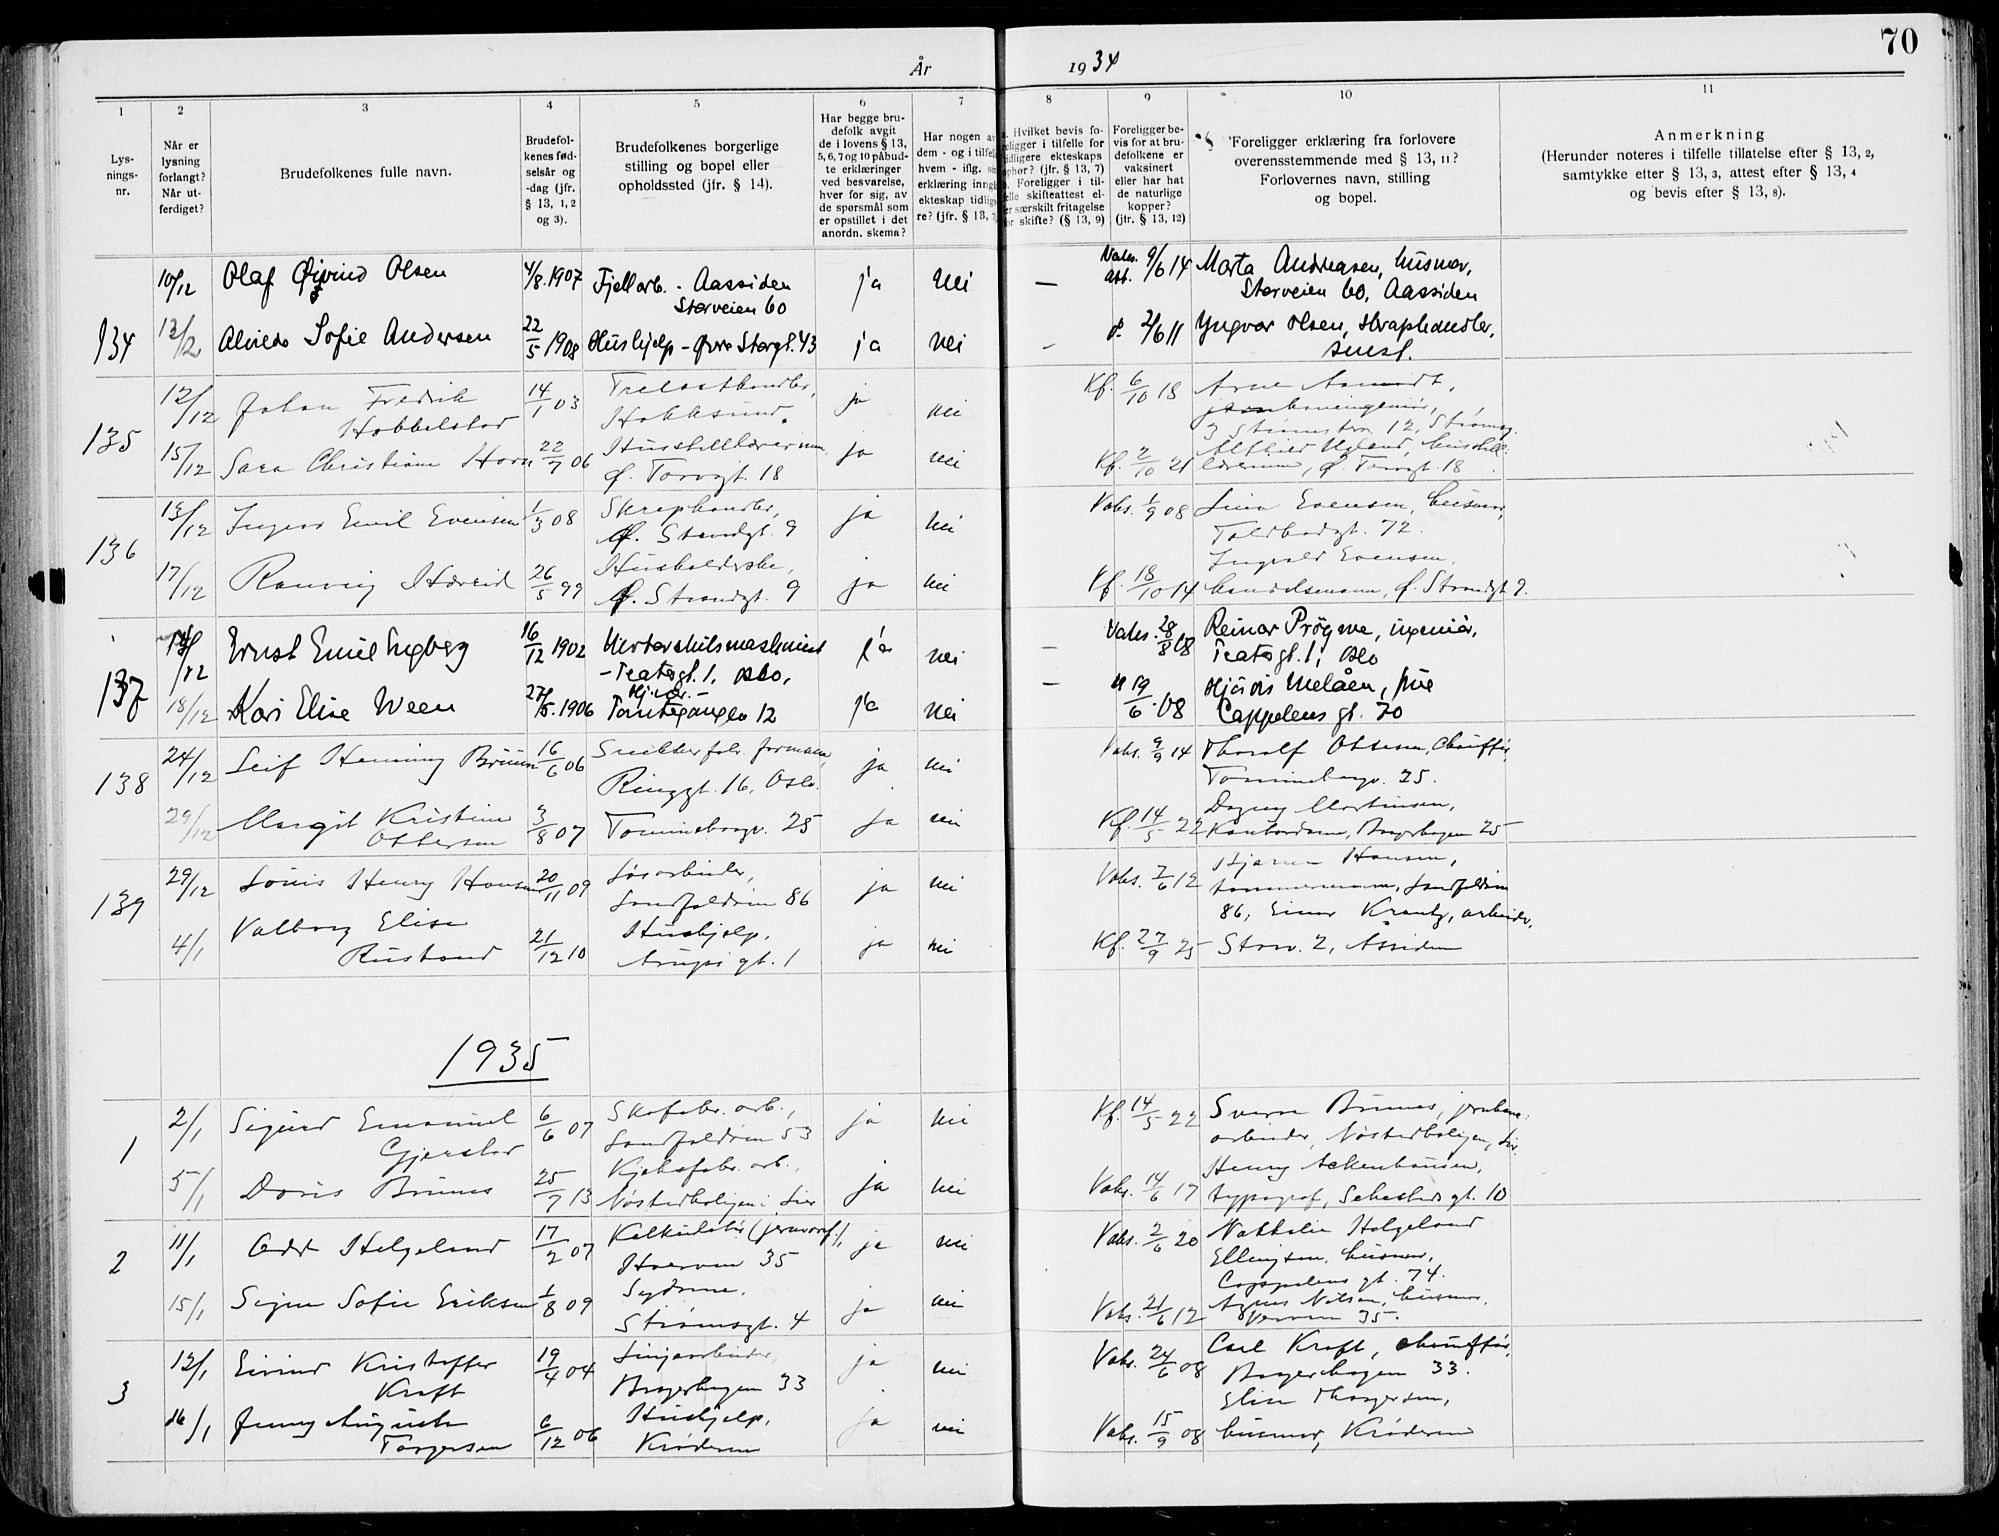 70
År 1934
1 2 3 4 5 6 7 8 9 10 11
Lys-
nings-
nr.
Når er
lysning
forlangt?
Når ut-
ferdiget?
Brudefolkenes fulle navn.
Brudefol-
kenes fød-
selsår og
-dag (jfr.
§ 13, 1, 2
og 3).
Brudefolkenes borgerlige
stilling og bopel eller
opholdssted (jfr. § 14).
Har begge bru-
defolk avgit
de i lovens § 13,
5, 6, 7 og 10 påbud-
te erklæringer
ved besvarelse,
hver for sig, av
de spørsmål som
er opstillet i det
anordn. skema?
Har nogen a
dem - og i tilfel
hvem - iflg. s
erklæring inng
ekteskap tidlig
re? (jfr. § 13,
a. Hvilket bevis fo-
religger i tilfelle for
tidligere ekteskaps
ophør? (jfr. § 13, 7)
b. Foreligger i til-
felle skifteattest el-
er særskilt fritagelse
for skifte? (§ 13, 9)
Foreligger be-
vis for at bru-
defolkene er
vaksinert
eller har hat
de naturlige
kopper?
(jfr. § 13, 12)
Foreligger erklæring fra forlovere
overensstemmende med § 13, 11?
Forlovernes navn, stilling
og bopel.
Anmerkning
(Herunder noteres i tilfelle tillatelse efter § 13, 2,
samtykke etter § 13, 3, attest efter § 13, 4
og bevis efter § 13, 8).
10/12 Olaf Øivind Olsen 4/8.1907 Fjellarb. - Aassiden ja nei — Vaks. att. 9/6 14 Marta Andreasen, husmor,
Storveien 60 Storveien 60, Aassiden
134 13/12 Alvilde Sofie Andersen 22/5 1908 Hushjelp - Øvre Storgt. 43 ja nei - d. 2/6 11 Yngvar Olsen, skraphandler,
smst.
12/12 Johan Fredrik 14/1 03 Trelasthandler, ja nei Kf. 6/10 18 Arne
Hobbelstad Hokksund.
135 3 Strømstr. 12, Strømsg.
15/12 Sara Christiane Horn 22/7 06 Husstelllærerinne, ja nei Kf. 2/10 21
Ø. Torvgt. 18 lærerinne, Ø. Torvgt. 18
13/12 Ingvar Emil Evensen 1/3 08 Skraphandler, ja nei Vaks. 1/9 08 Lina Evensen, husmor,
136 Ø. Strandgt. 9 Toldbodgt. 72.
Husholderske, Ingvald Evensen,
17/12 Ranveig Hæreid 26/5 99 Ø. Strandgt. 9 ja nei Kf. 18/10 14 handelsmann, Ø. Strandgt 9.
14/12 Ernst Emil Engberg 16/12 1902 ja nei — Vaks. 28/8 08 Reinar Prøgne, ingeniør,
- Teatergt. 1, Oslo, Teatergt. 1, Oslo
137 18/12 Kari Elise Ween 27/5.1906 Tomtegangen 12 ja nei — " 19/6.08 Hjørdis Melåen, frue
Cappelens gt. 70
24/12 Leif Henning Bruun 16/6 06 Snekkerfabr. formann ja nei Vaks. 9/9 14 Thoralf Ottesen, chauffør,
138 Ringgt. 16, Oslo. Tomineborgv. 25.
Dagny Martinsen,
29/12 Margit Kristine 3/8 07 Tomineborgv. 25 ja nei Kf. 14/5 22 Kontordame, Bragerhagen 25
Ottersen
29/12 Louis Henry Hansen 20/11 09 Løsarbeider, ja nei Vaks. 7/6 12 Bjarne Hansen,
139 Landfaldøen 86 tømmermann, Landfaldøen
Valborg Elise Hushjelp, 86, Einar Krantz, arbeider,
4/1 Rustand 21/12 10 Arupsgt. 1 ja nei Kf. 27/9 25 Storv. 2, Assiden
1935
2/1 Sigurd Emanuel 6/6 07 Skofabr. arb., ja nei Kf. 14/5 22 Sverre Brunes, jernbane-
1 Gjerstad Landfaldøen 53 arbeider, Nøstedboligen, Lier.
Kjeksfabr. arb., Henry Ackenhausen,
5/1 Doris Brunes 25/7 13 Nøstedboligen i Lier ja nei Vaks. 14/6 17 typograf, Schestedsgt. 10
11/1 Odd Helgeland 17/2 07 Kalkulatør (jernvaref.), ja nei Vaks. 2/6 20 Nathalie Helgeland
2 Hvervén 35 Ellingsen, husmor,
Sydame, Cappelens gt. 74.
15/1 Signe Sofie Eriksen 1/8 09 Strømsgt. 4 ja nei Vaks. 21/6 12 Agnes Nilsen, husmor,
35.
12/1 Eivind Kristoffer 19/4 04 Linjearbeider, ja nei Vaks. 24/6 08 Carl Kraft, chauffør,
3 Kraft Bragerhagen 33 Bragerhagen 33.
Hushjelp, Elise Thorgersen,
16/1 Jenny Augusta 6/12 06 Krøderen ja nei Vaks. 15/9 08 husmor, Krøderen
Torgersen